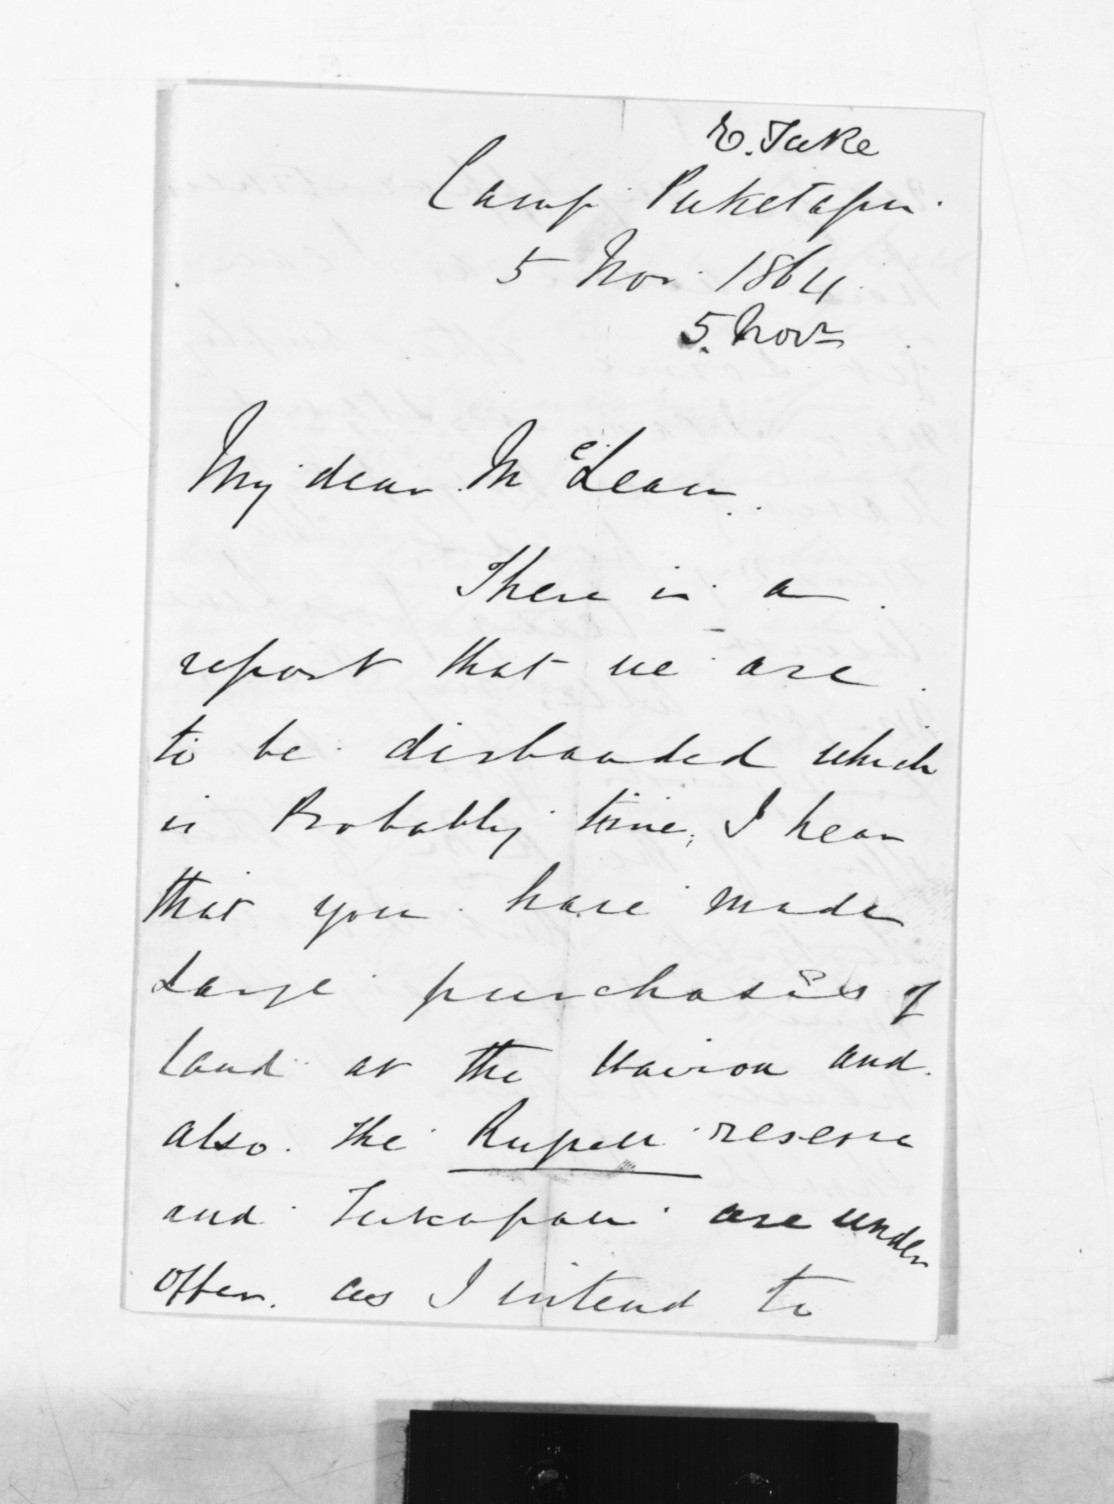 E. Tuke
Camp Puketapu.
5 Nov. 1864.
5. Novr
My dear McLean.
There is a
report that we are
to be disbanded which
is Probably true, I hear
that you have made
Large purchases of
land at the Wairoa and
also the reserve
and Takapau are under
offer. as I intend to